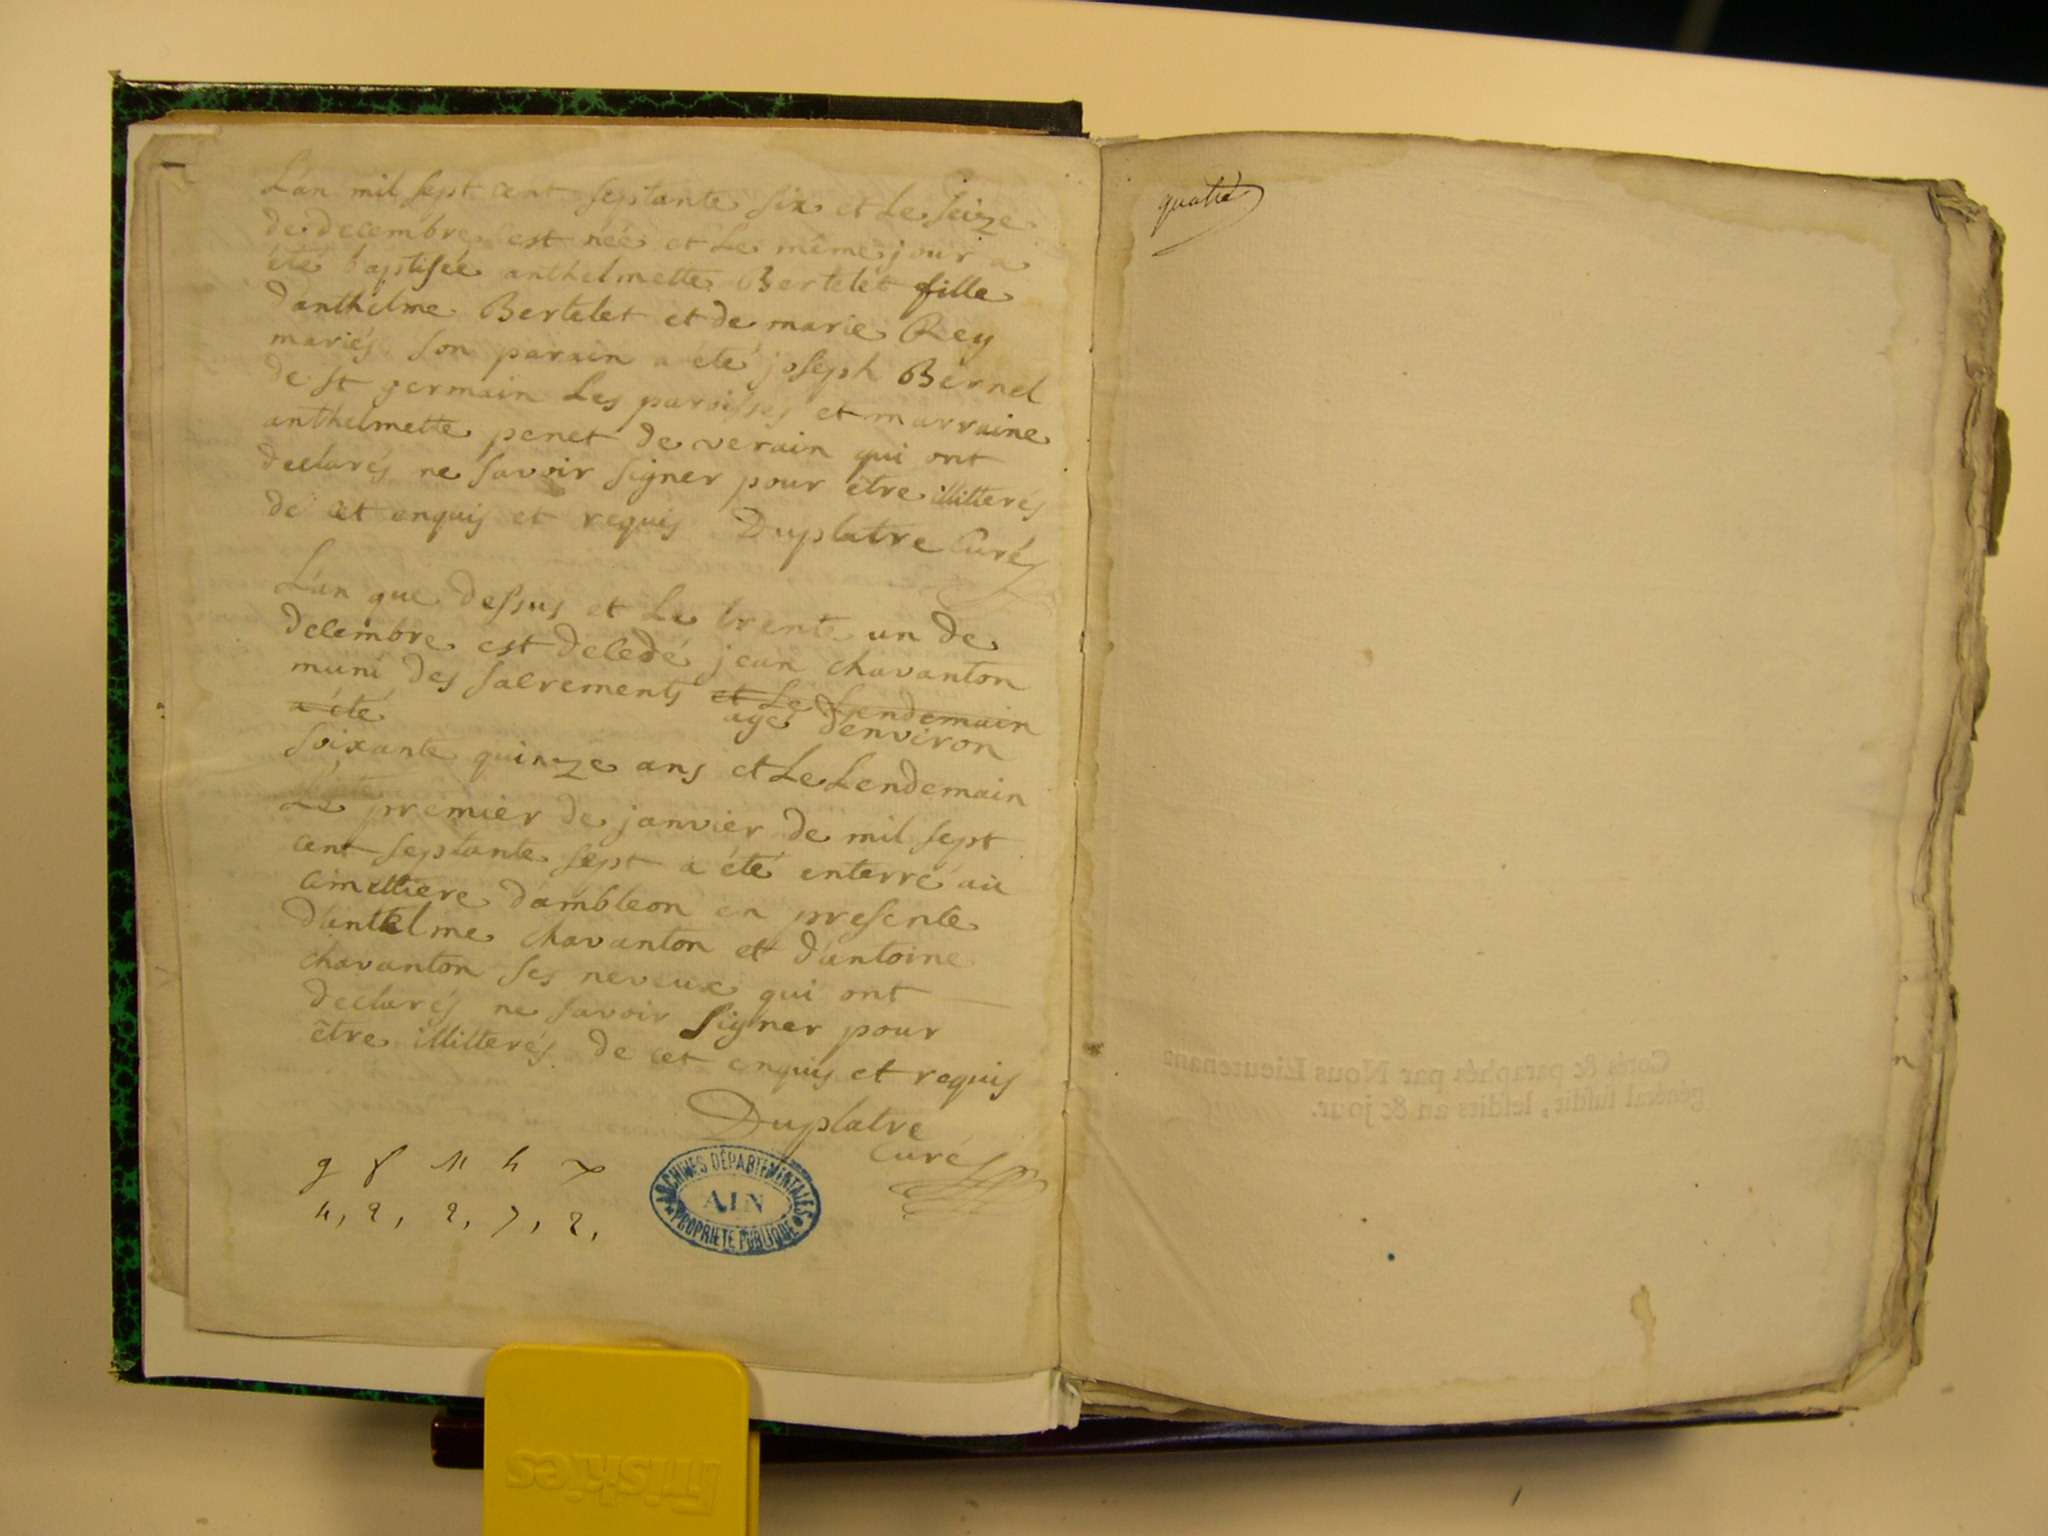 L'an mil sept cent septante six et Le seize
de decembre est née et Le même jour a
été baptisée anthelmette Bertelet fille
d'anthelme Bertelet et de marie Rey
mariés son parain a été joseph Bernel
de st germain Les paroisses et marraine
anthelmette penet de verain qui ont
declarés ne savoir signer pour etre illitterés
de cet enquis et requis Duplatre Curé
L'an que dessus et Le trente un de
decembre est decedé jean chavanton
muni des sacrements et Le Lendemain
a été agé d'environ
soixante quinze ans et Le Lendemain
Le premier de janvier de mil sept
cent septante sept a été enterré au
cimettiere d'ambleon en presente
d'antelme chavanton et d'antoine
chavanton ses neveux qui ont
declarés ne savoir signer pour
être illitterés de cet enquis et requis
Duplatre
Curé
4, 2, 2, 7, 2,
ARCHIVES DÉPARTEMENTALES
AIN
PROPRIÉTÉ PUBLIQUE
quatre
Cotés & paraphés par Nous Lieutenant
général susdit, lesdits an & jour.
Friskies